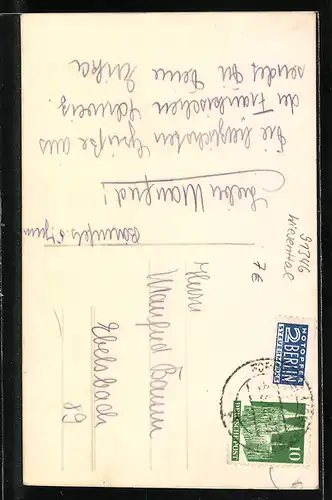 Lieber Manfred!
die herzlichsten Grüße aus
der Fränkischen Schweiz
sendet Dir Deine Erika
Herrn
Manfred Baum
Ebelsbach
89
91346
Wiesenthal
7€
NOTOPFER
2 BERLIN
STEUERMARKE
DEUTSCHE POST
10